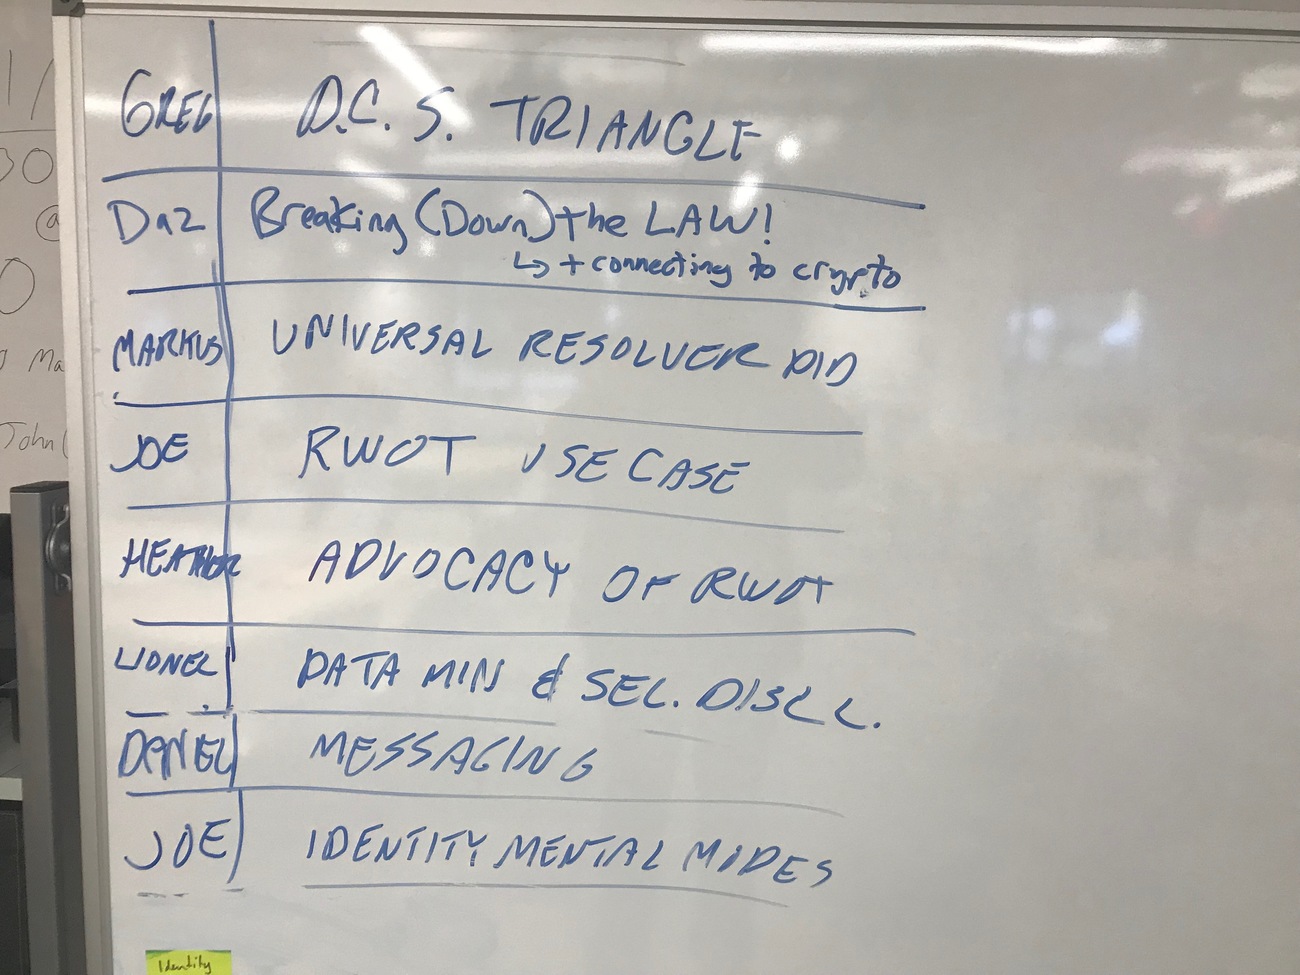 GREG D.C.S. TRIANGLE
Daz Breaking (Down) the LAW!
↳ + connecting to crypto
MARKUS UNIVERSAL RESOLVER DID
JOE RWOT USE CASE
HEATHER ADVOCACY OF RWOT
LIONEL DATA MIN & SEL. DISCL.
DANIEL MESSAGING
JOE IDENTITY MENTAL MODES
Identity
@
Ma
John